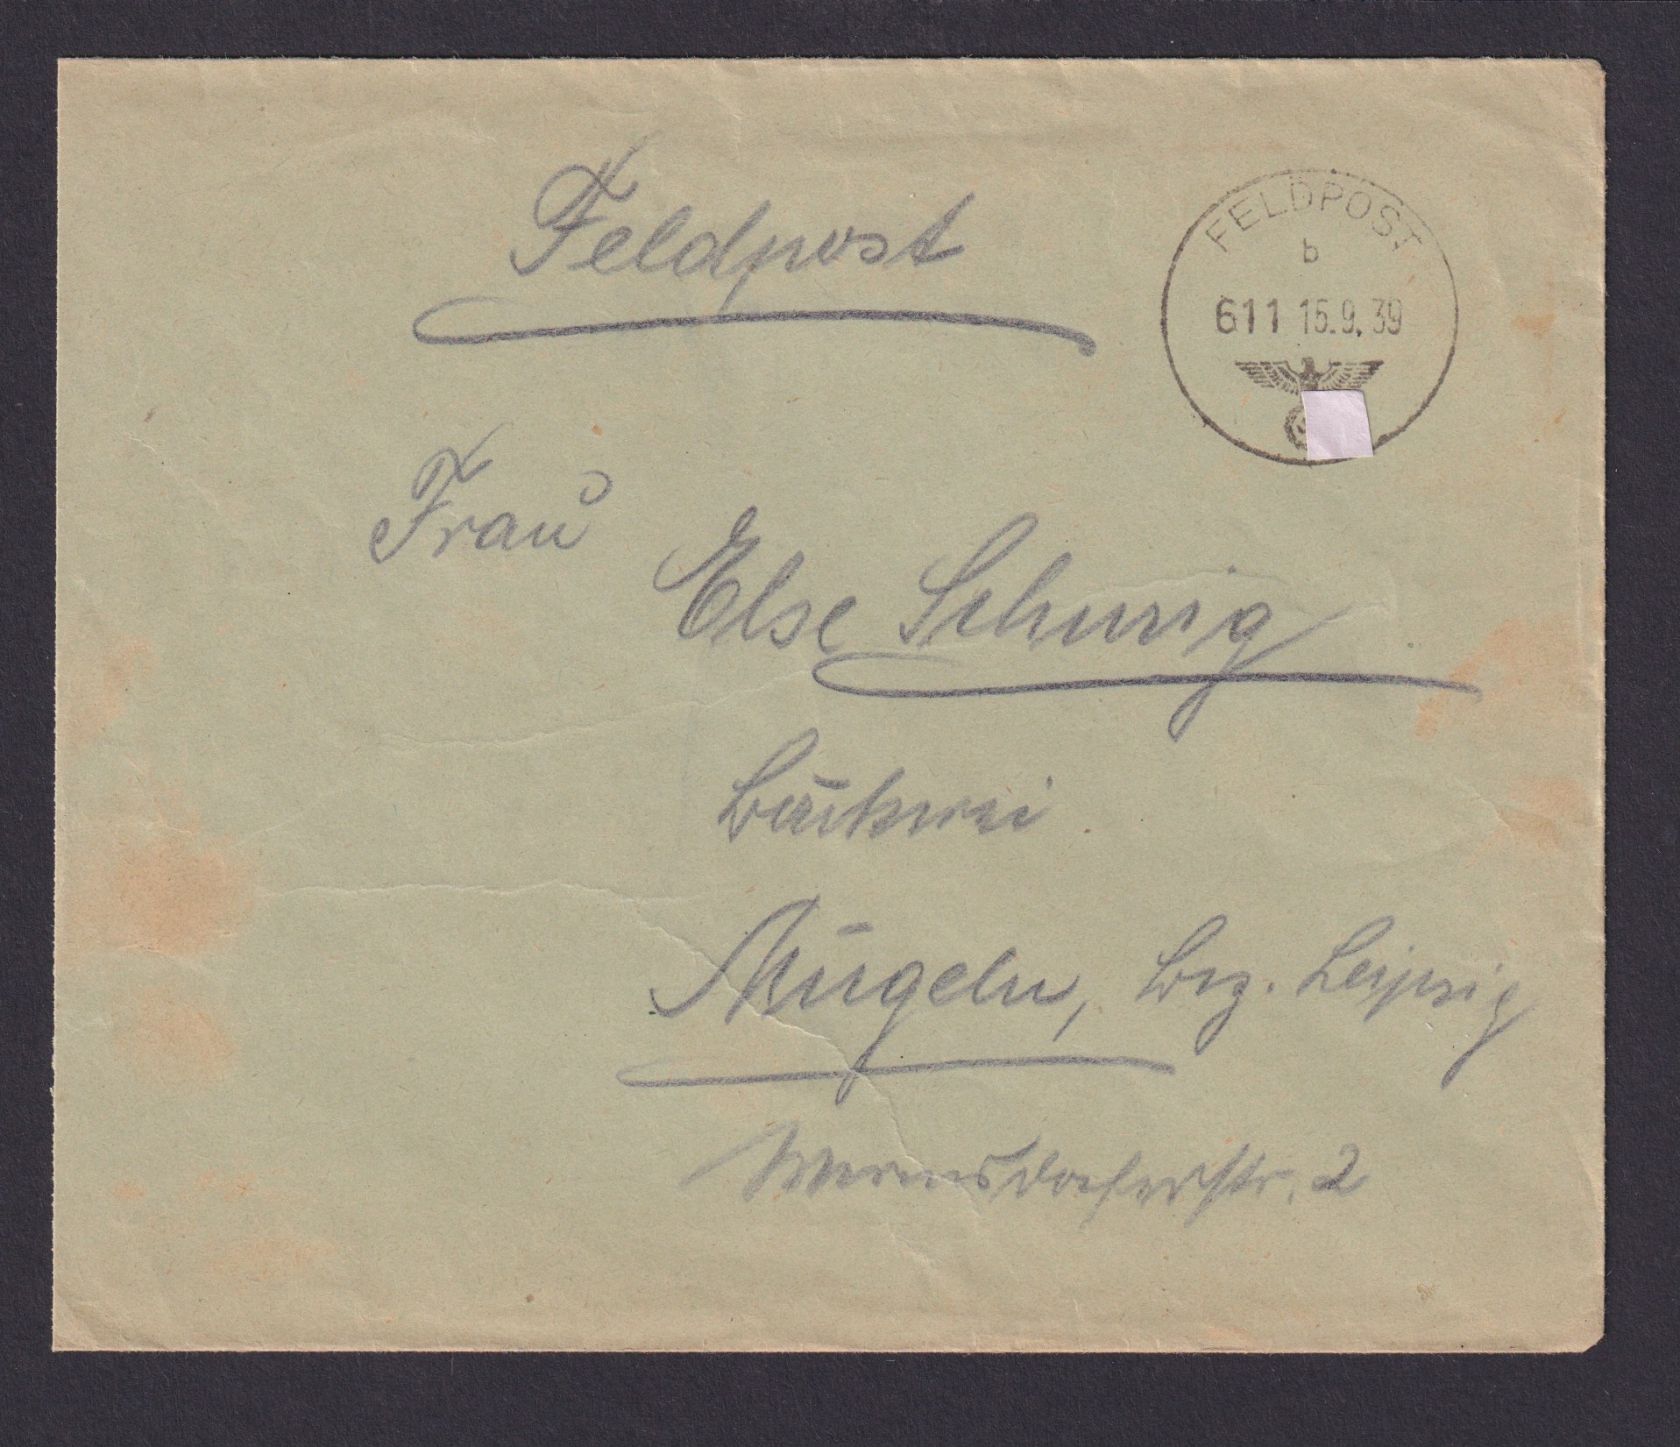 Feldpost
FELDPOST
b
611 15.9.39
Frau
Else Schurig
Bäckerei
Mügeln, Bez. Leipzig
Wermsdorferstr. 2